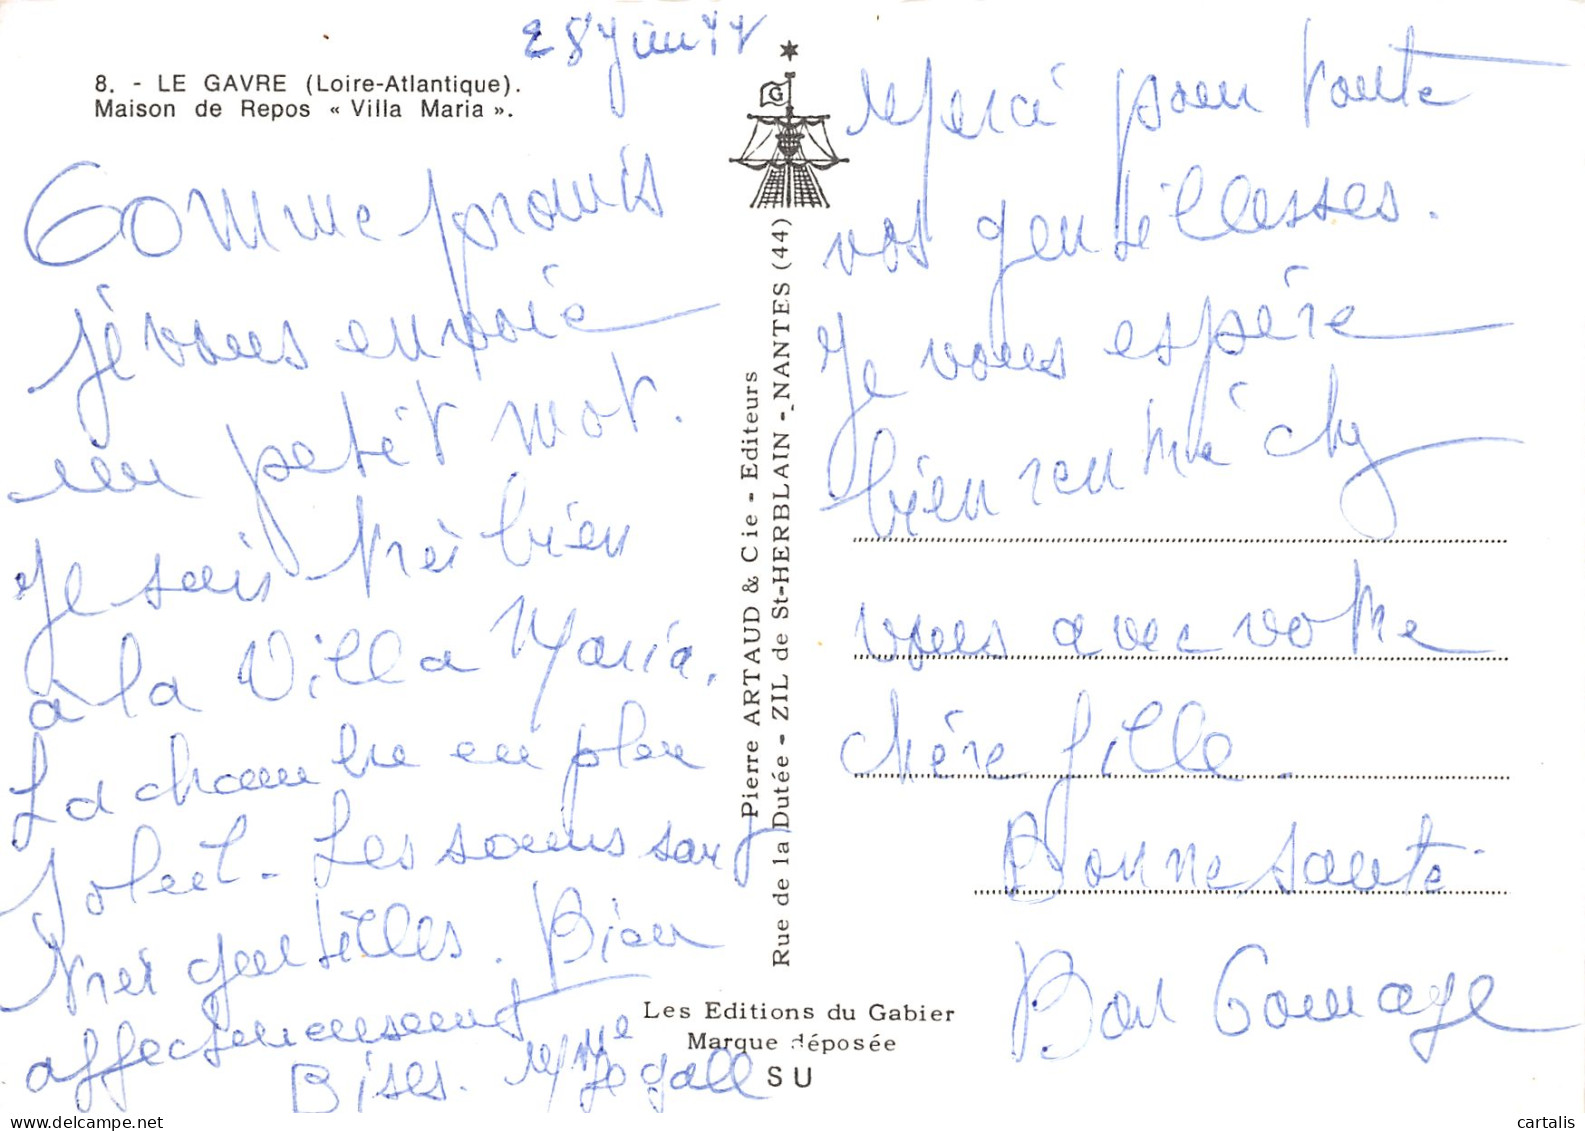 28 Juin 77
8. - LE GAVRE (Loire-Atlantique).
Maison de Repos « Villa Maria ».
Comme promis
je vous envoie
un petit mot.
Je suis très bien
à la Villa Maria.
La chambre en plein
soleil. Les sœurs sont
très gentilles. Bien
affectueusement
Bises. Mme Le gall
Pierre ARTAUD & Cie - Editeurs
Rue de la Dutée - ZIL de St-HERBLAIN - NANTES (44)
G
Les Editions du Gabier
Marque déposée
SU
Merci pour toute
vos gentillesses.
Je vous espère
bien chez
vous avec votre
chère fille.
Bonne santé
Bon Courage
cartalis